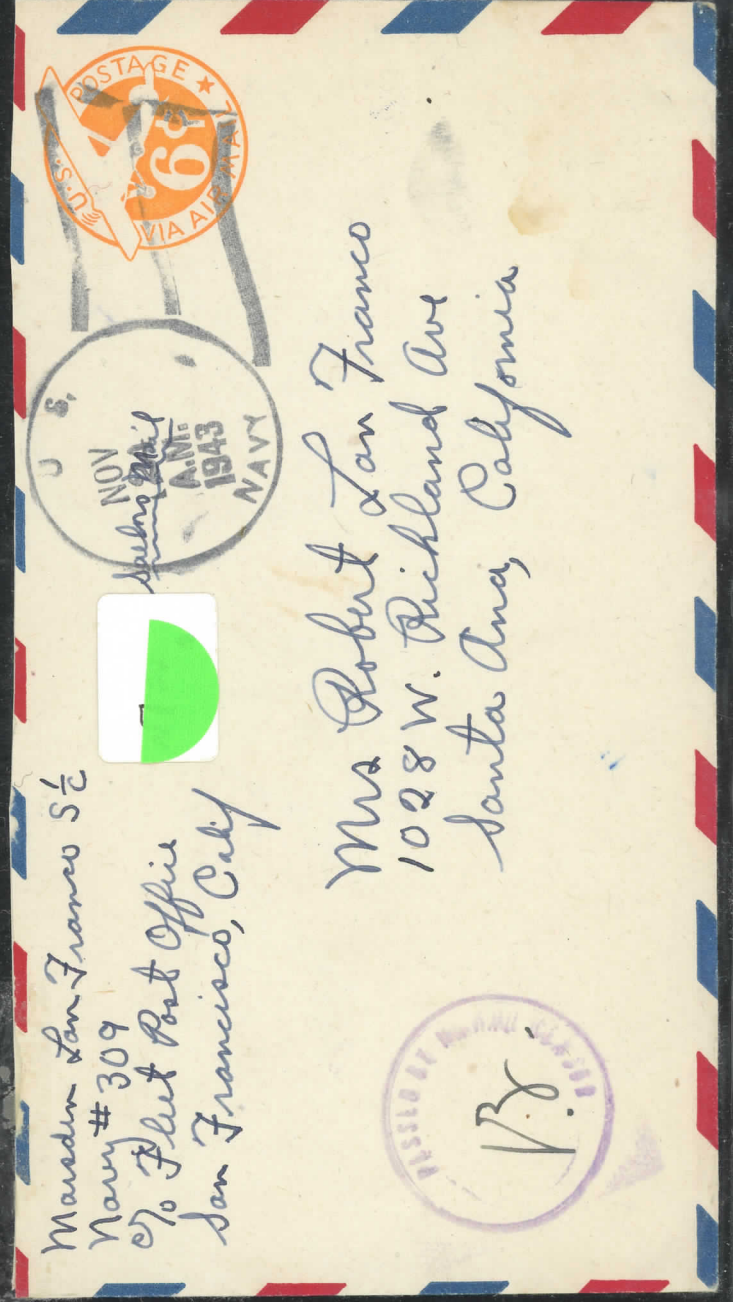 Marsden Lan Franco S 1/c
Navy # 309
c/o Fleet Post Office
San Francisco, Calif
U.S. POSTAGE ★
6¢
VIA AIR MAIL
U S.
NOV
A.M.
1943
NAVY
Mrs Robert Lan Franco
1028 W. Richland Ave
Santa Ana, California
PASSED BY NAVAL CENSOR